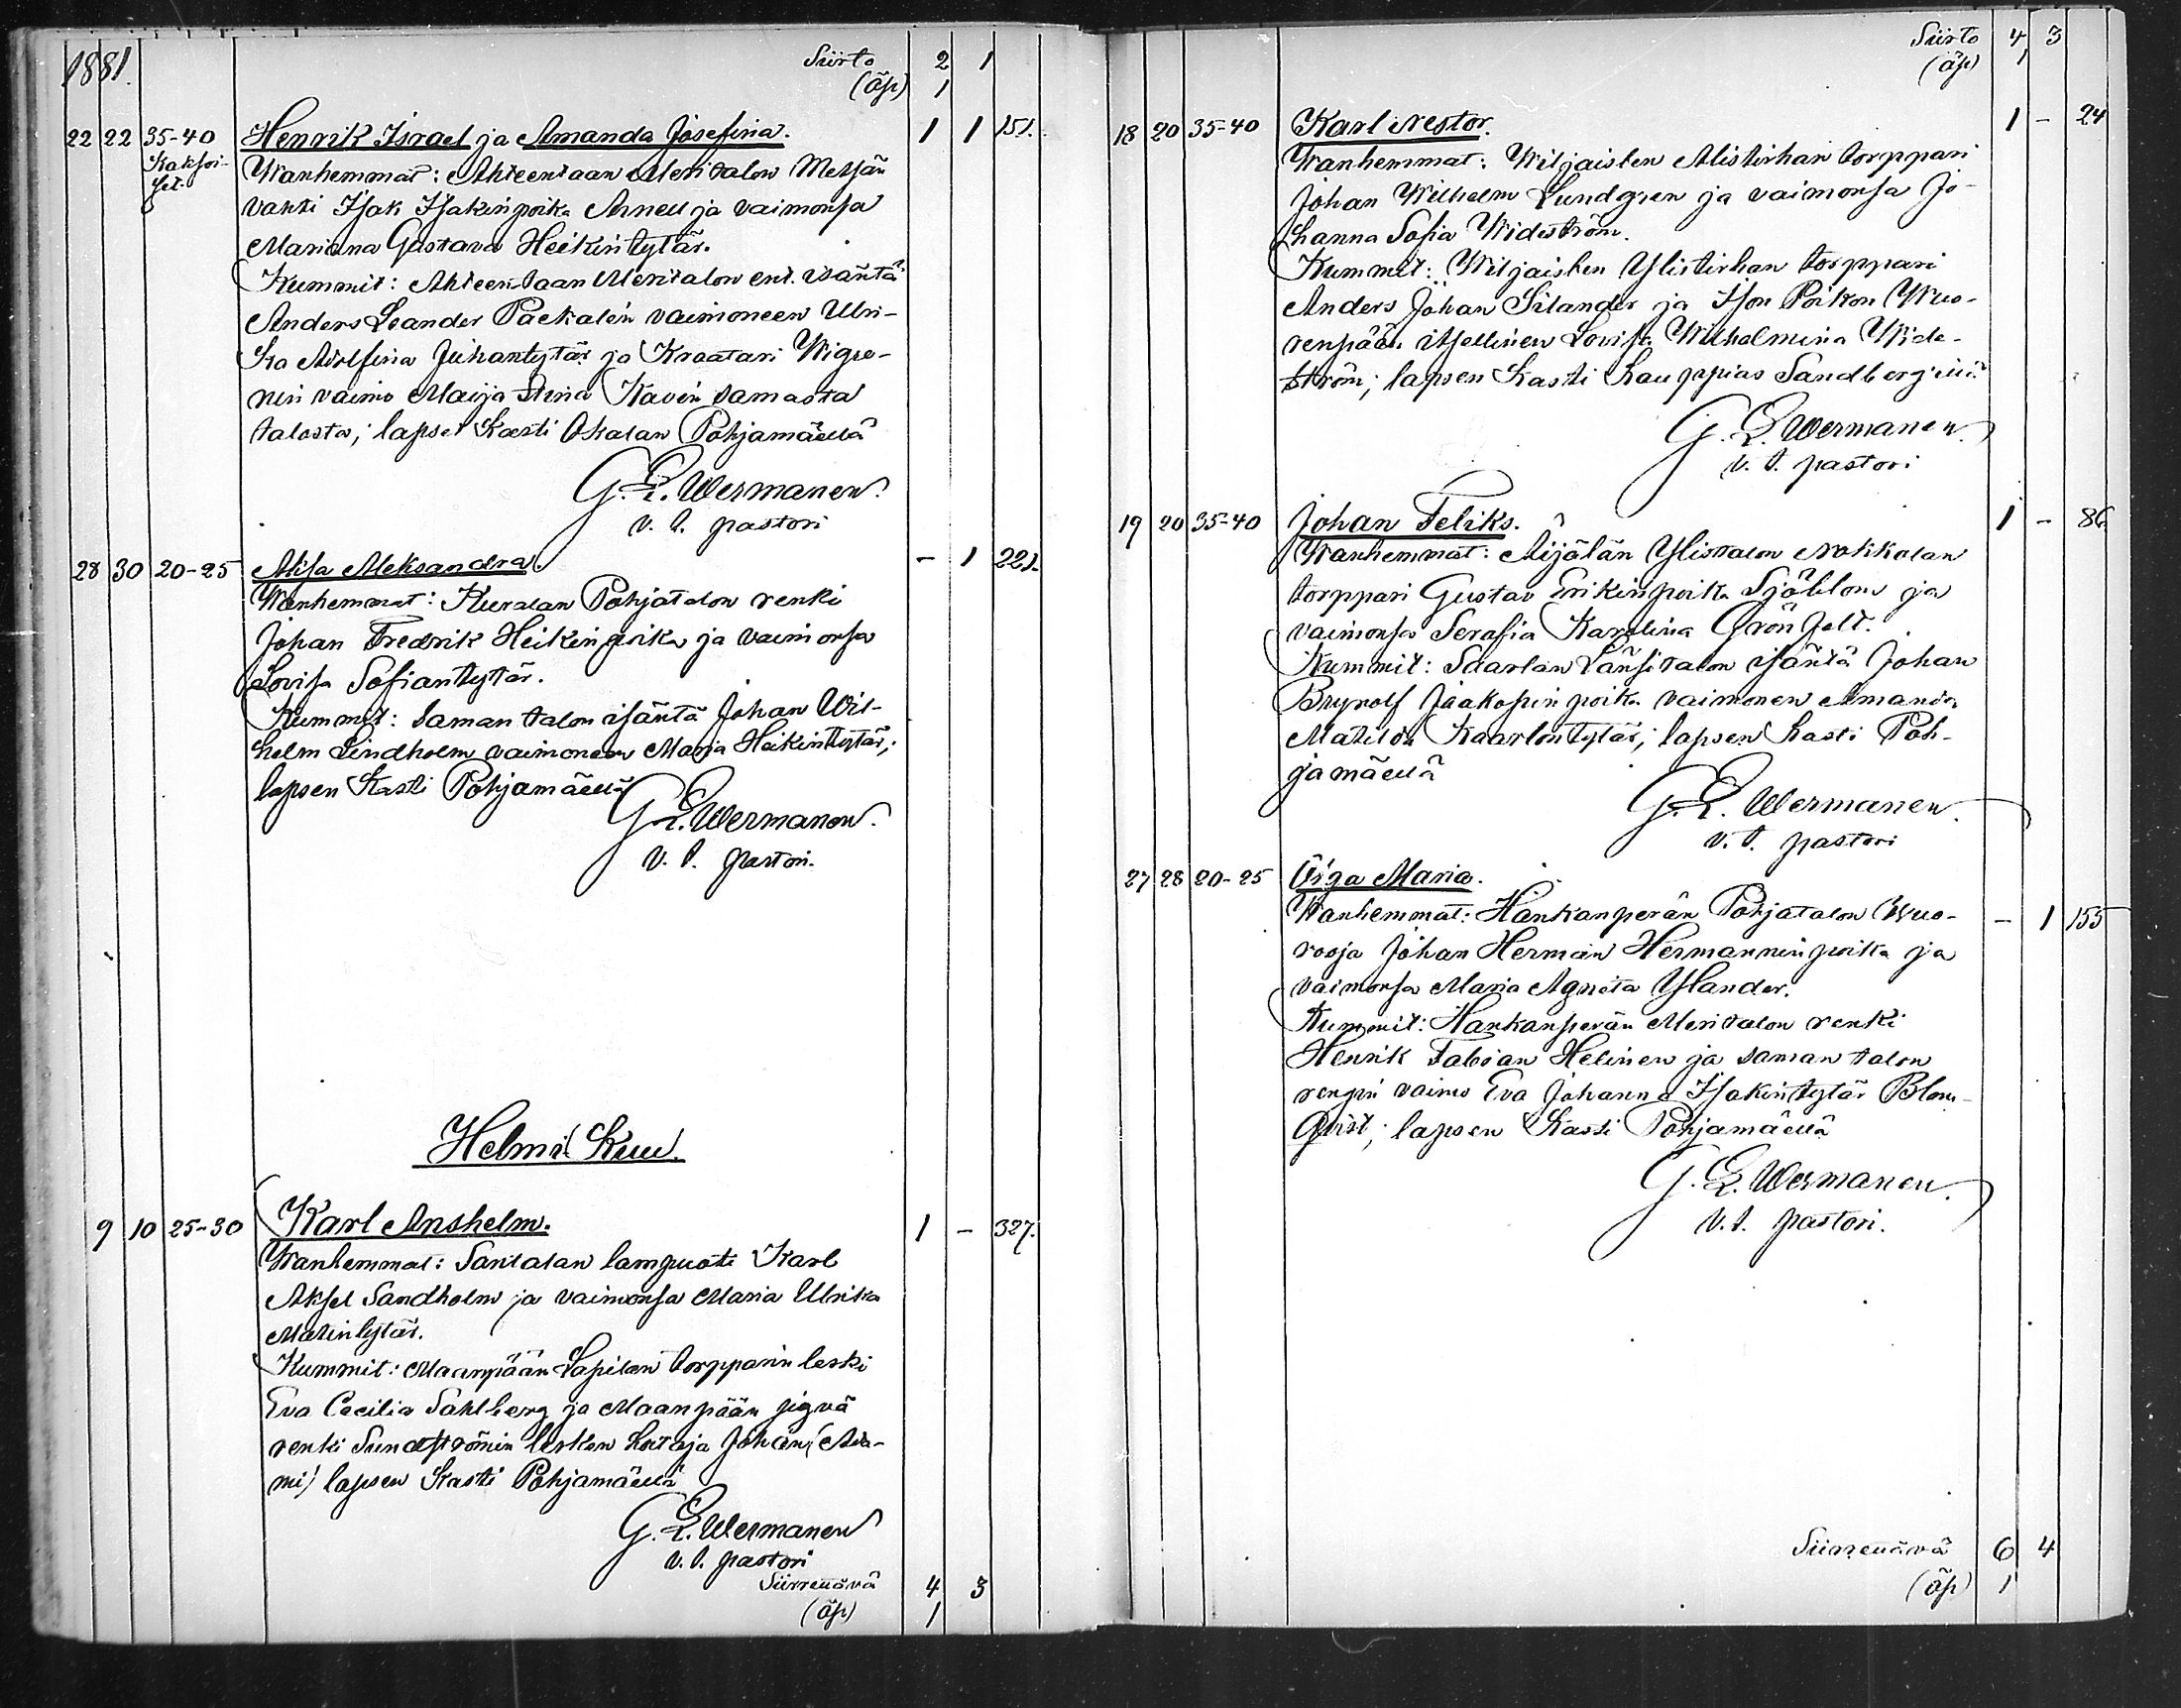 1881.
Siirto 2 1
(äp) 1
22 22 35-40 Henrik Israel ja Amanda Josefina. 1 1 151.
Kaksoi- Wanhemmat: Ahteentaan Meritalon Metsän
set. vahti Isak Isakinpoika Arnell ja vaimonsa
Mariana Gustava Heikintytär.
Kummit: Ahteentaan Meritalon ent. isäntä
Anders Leander Packalén vaimoneen Ulri-
ka Adolfina Juhantytär ja Kraatari Wigre-
nin vaimo Maija Stina Kavén samasta
talosta; lapset Kasti Okalan Pohjamäellä
G. E. Wermanen.
v. t. pastori
28 30 20-25 Alisa Aleksandra. - 1 221.
Wanhemmat: Kuralan Pohjatalon renki
Johan Fredrik Heikinpoika ja vaimonsa
Lovisa Sofiantytär.
Kummit: Saman talon isäntä Johan Wil-
helm Lindholm vaimoneen Maria Heikintytär;
lapsen Kasti Pohjamäellä
G. E. Wermanen.
v. t. pastori.
Helmi Kuu.
9 10 25-30 Karl Anshelm. 1 - 327.
Wanhemmat: Santalan lampuoti Karl
Aksel Sandholm ja vaimonsa Maria Ulrika
Matintytär.
Kummit: Maanpään Lapilan torpparin leski
Eva Cecilia Sahlberg ja Maanpään
renki Sundströmin lesken hoitaja Johan
lapsen Kasti Pohjamäellä
G. E. Wermanen
v. t. pastori
Siirrettävä 4 3
(äp) 1
Siirto 4 3
(äp) 1
18 20 35-40 Karl Nestor. 1 - 24
Wanhemmat: Wiljaisten Alistirhan torppari
Johan Wilhelm Lundgren ja vaimonsa Jo-
hanna Sofia Wideström.
Kummit: Wiljaisten Ylistirhan torppari
Anders Johan Silander ja Ison Poikon Wuo-
renpään itsellinen Lovisa Wilhelmina Wide-
ström; lapsen Kasti Kauppias Sandberg
G. E. Wermanen.
v. t. pastori
19 20 35-40 Johan Feliks. 1 - 86.
Wanhemmat: Äijälän Ylistalon Nokkalan
torppari Gustav Erikinpoika Sjöblom ja
vaimonsa Serafia Karolina Grönfelt.
Kummit: Saarlan Länsitalon isäntä Johan
Brynolf Jaakopinpoika vaimonen Amanda
Matilda Kaarlontytär; lapsen Kasti Poh-
jamäellä
G. E. Wermanen.
v. t. pastori
27 28 20-25 Olga Maria.
Wanhemmat: Hankanperän Pohjatalon Wuo- - 1 155
rooja Johan Herman Hermanninpoika ja
vaimonsa Maria Agneta Ylander.
Kummit: Hankanperän Meritalon renki
Henrik Fabian Helinen ja saman talon
rengin vaimo Eva Johanna Isakintytär Blom-
qvist; lapsen Kasti Pohjamäellä
G. E. Wermanen.
v. t. pastori.
Siirrettävä 6 4
(äp) 1